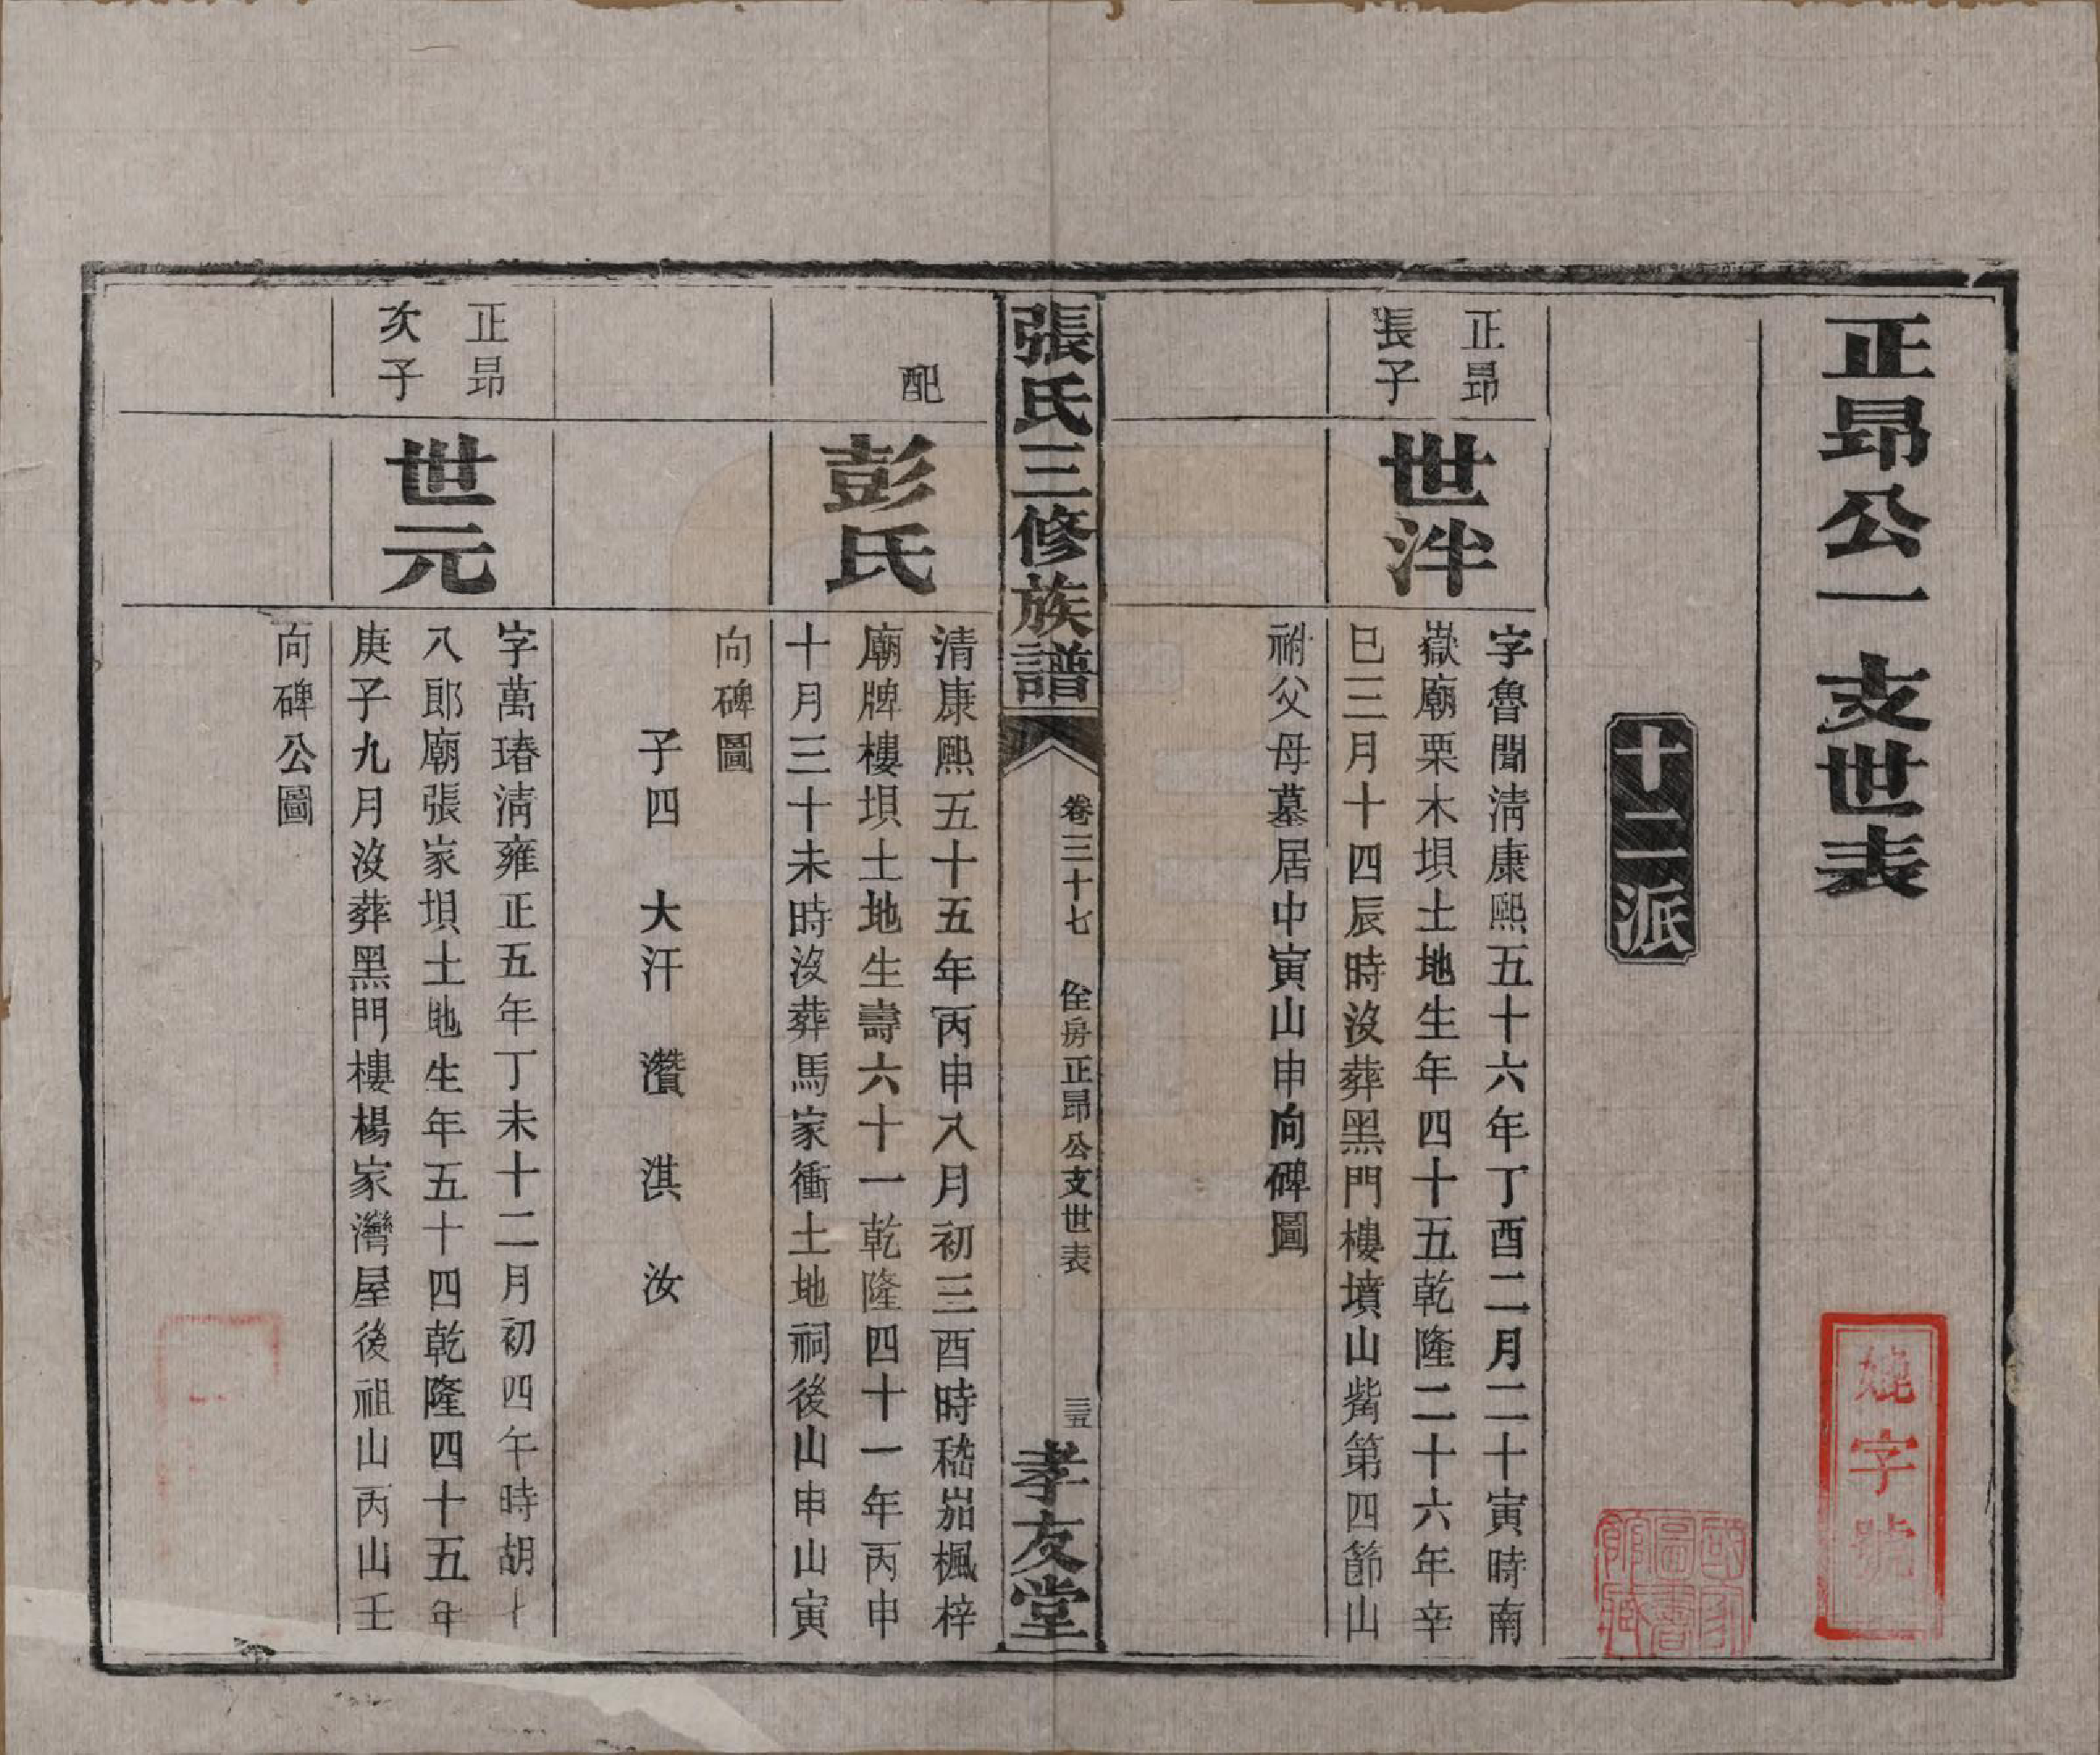 正昂公一支世表
燒字號
十二派
正昂
長子
世泮
字魯聞淸康熙五十六年丁酉二月二十寅時南
嶽廟栗木垻土地生年四十五乾隆二十六年辛
巳三月十四辰時沒葬黑門樓墳山觜第四節山
祔父母墓居中寅山申向碑圖
張氏三修族譜
卷三十七
佺房正昂公支世表
三五
孝友堂
配
彭氏
清康熙五十五年丙申八月初三酉時嵇茄楓梓
廟牌樓垻土地生壽六十一乾隆四十一年丙申
十月三十未時沒葬馬家衝土地祠後山申山寅
向碑圖
子四 大汗 灒 淇 汝
正昂
次子
世元
字萬瑃淸雍正五年丁未十二月初四午時胡十
八郎廟張家垻土地生年五十四乾隆四十五年
庚子九月沒葬黑門樓楊家灣屋後祖山丙山壬
向碑公圖
國家
圖書
館藏